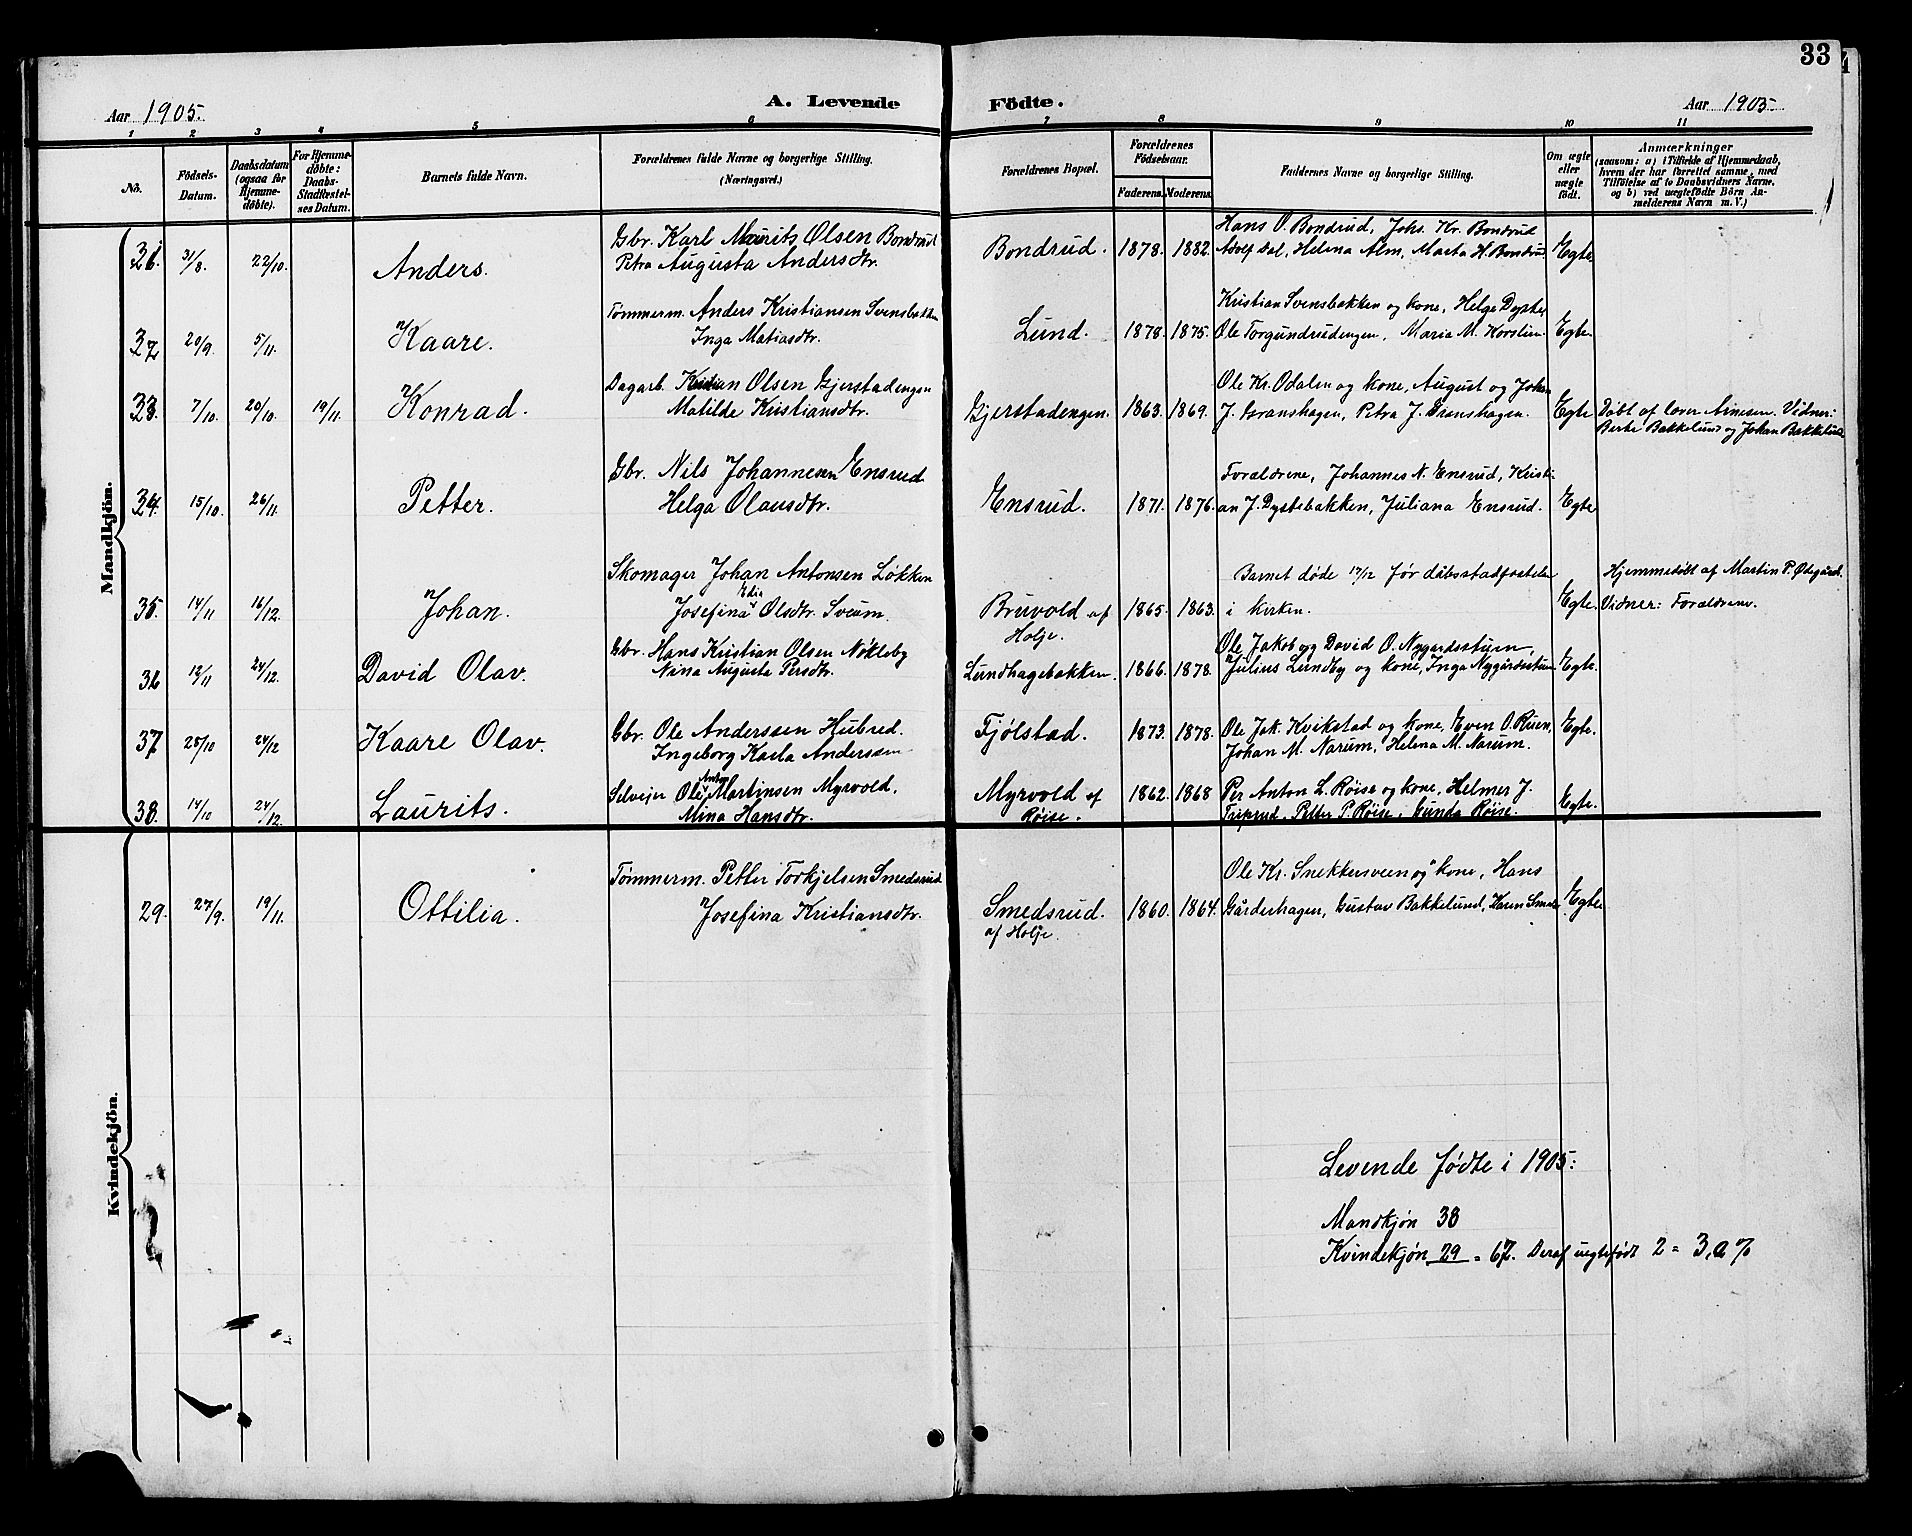 33
Aar 1905.
A. Levende Födte.
Aar 1905.
1 2 3 4 5 6 7 8 9 10 11
No.
Födsels-Datum.
Daabsdatum (ogsaa for Hjemme-döbte).
For Hjemme-döbte: Daabs-Stadfæstel-ses Datum.
Barnets fulde Navn.
Forældrenes fulde Navne og borgerlige Stilling.
(Næringsvei.)
Forældrenes Bopæl.
Forældrenes Födselsaar.
Faderens. Moderens.
Faddernes Navne og borgerlige Stilling.
Om ægte eller uægte födt.
Anmærkninger
(saasom: a) i Tilfælde af Hjemmedaab,
hvem der har forrettet samme, med
Tilföielse af to Daabsvidners Navne,
og b) ved uægtefödte Börn An-
melderens Navn m. V.)
Mandkjön.
31. 31/8. 22/10. Anders. Gbr. Karl Maurits Olsen Bondrud Bondrud. 1878. 1882. Hans O. Bondrud, Johs. Kr. Bondrud Egte
Petra Augusta Andersdtr. Adolf Dal, Helena Alm, Marta H. Bondrud
32 20/9. 5/11. Kaare. Tømmerm. Anders Kristiansen Svensbakken Lund. 1878. 1875. Kristian Svensbakken og kone, Helge Dyster Egte
Inga Matiasdtr. Ole Torgundrudengen, Maria M. Horslien.
33. 7/10. 20/10. 19/11. Konrad. Dagarb. Kristian Olsen Gjerstadengen Gjerstadengen. 1863. 1869. Ole Kr. Odalen og kone, August og Johan Egte Døbt af lærer Arnesen. Vidner:
Matilde Kristiansdtr. J. Granshagen, Petra J. Granshagen. Berte Bakkelund og Johan Bakkelund
34. 15/10. 26/11. Petter. Gbr. Nils Johannesen Ensrud Ensrud. 1871. 1876. Forældrene, Johannes N. Ensrud, Kristi- Egte
Helga Olausdtr. an J. Dystebakken, Juliana Ensrud.
35. 14/11 16/12. Johan. Skomager Johan Antonsen Løkken Bruvold af 1865. 1863. Barnet døde 17/12 før dåbsstadfæstelse Egte. Hjemmedøbt af Martin P. Ødegård.
Josefina Edia Olsdtr. Sveum. Holje. i kirken. Vidner: Forældrene.
36 12/11 24/12. David Olav. Gbr. Hans Kristian Olsen Nøkleby Lundhagebakken. 1866. 1878. Ole Jakob og David O. Nygårdsstuen, Egte.
Nina Augusta Persdtr. Julius Lundby og kone, Inga Nygårdsstuen
37 25/10 24/12 Kaare Olav. Gbr. Ole Anderssen Hubred. Fjølstad. 1873. 1878. Ole Jak. Kvikstad og kone, Even O. Ruen, Egte.
Ingeborg Karla Anderssen Johan M. Narum, Helena M. Narum.
38. 14/10 24/12. Laurits. Selveier Ole Anton Martinsen Myrvold. Myrvold af 1862. 1868 Per Anton L. Røise og kone, Helmer J. Egte.
Mina Hansdtr. Røise. Petter P. Røise, Gunda Røise.
Kvindekjön.
29. 27/9. 19/11. Ottilia. Tømmerm. Petter Torkjelsen Smedsrud Smedsrud. 1860. 1864. Ole Kr. Snekkersveen og kone, Hans Egte
Josefina Kristiansdtr. af Holje. Gårderhagen, Gustav Bakkelund, Karen
Levende fødte i 1905:
Mandkjøn 38
Kvindekjøn 29 = 67. Deraf uegtefødt 2 = 3,0 %